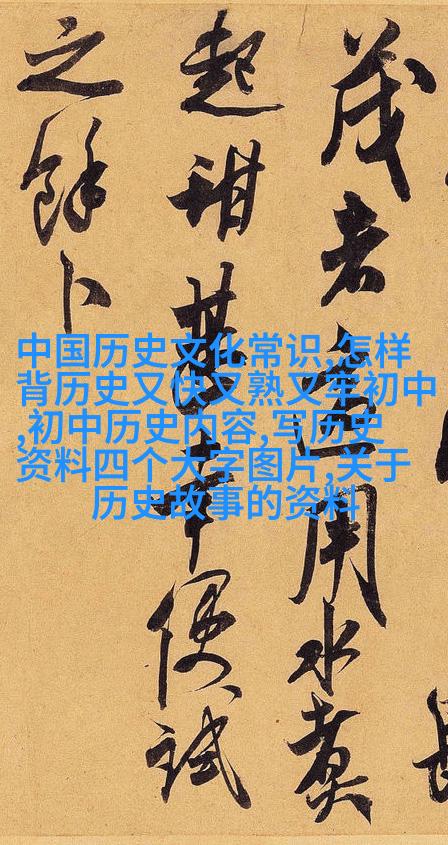 茂者用水煮
起甜甚幸便試
之餘卜
中国历史文化常识,怎样
背历史又快又熟又牢初中
,初中历史内容,写历史
资料四个大字图片,关于
历史故事的资料